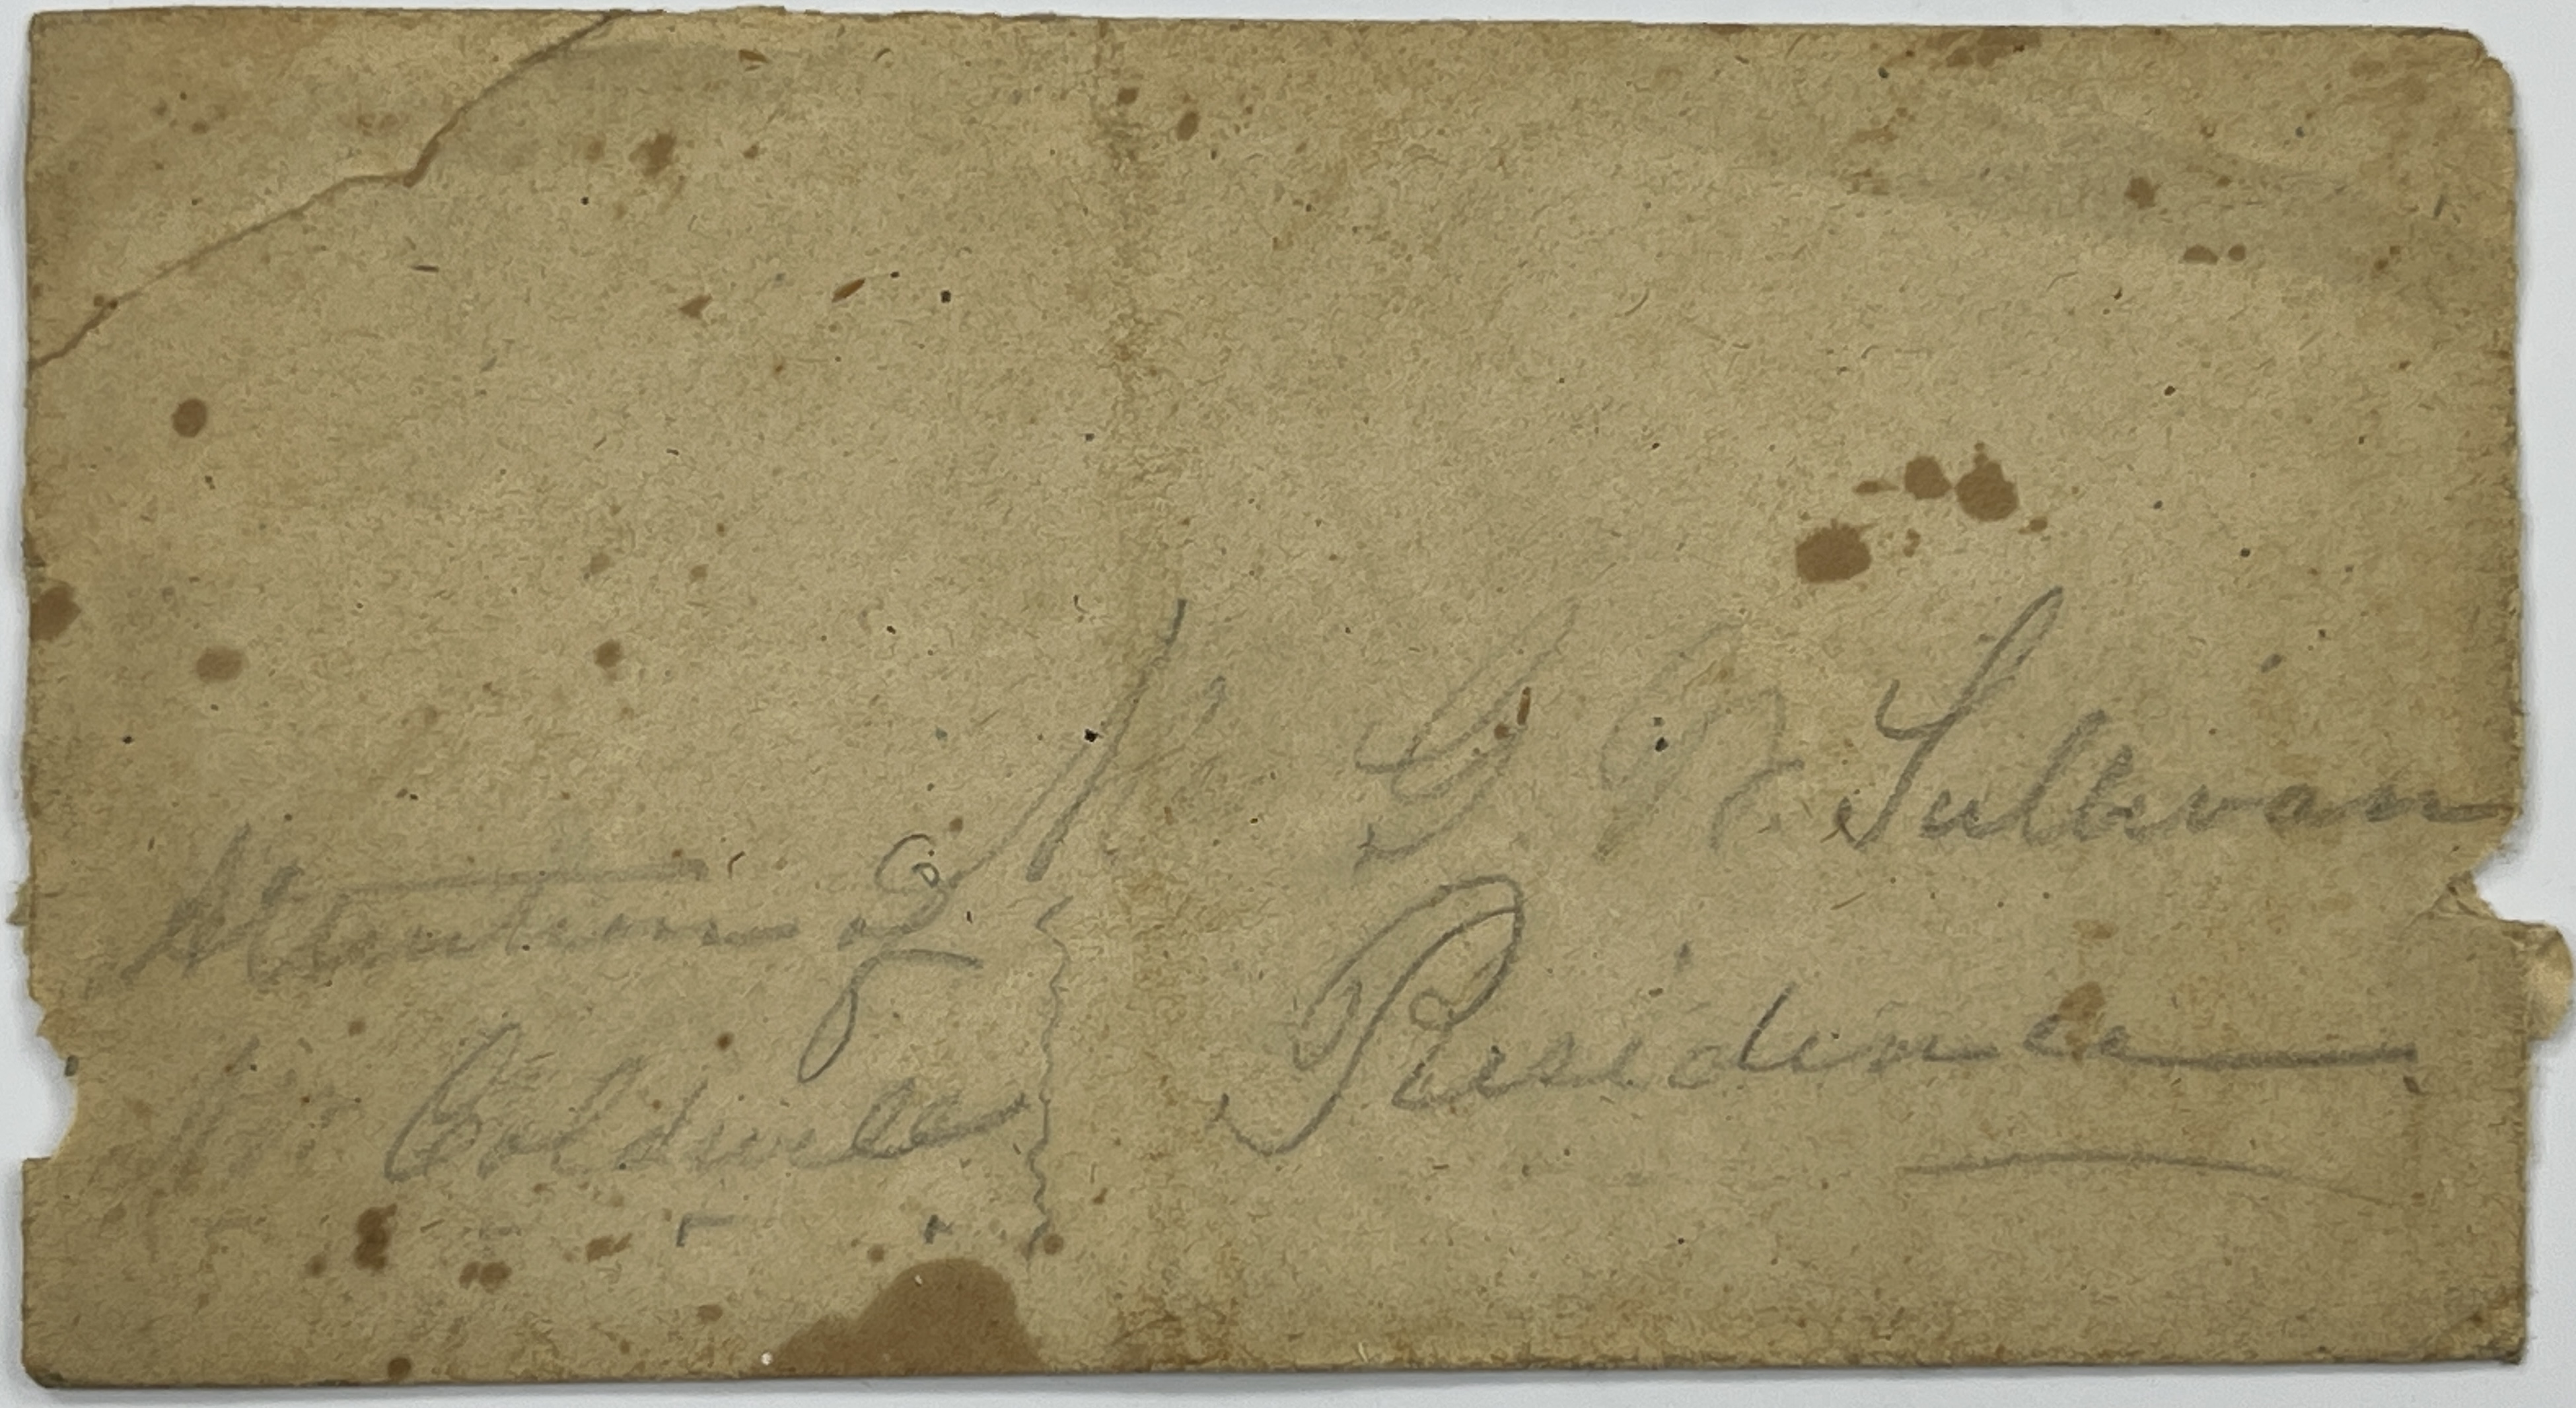 Mr G B Sullivan
Residence
Attention of
Mr Coldwell